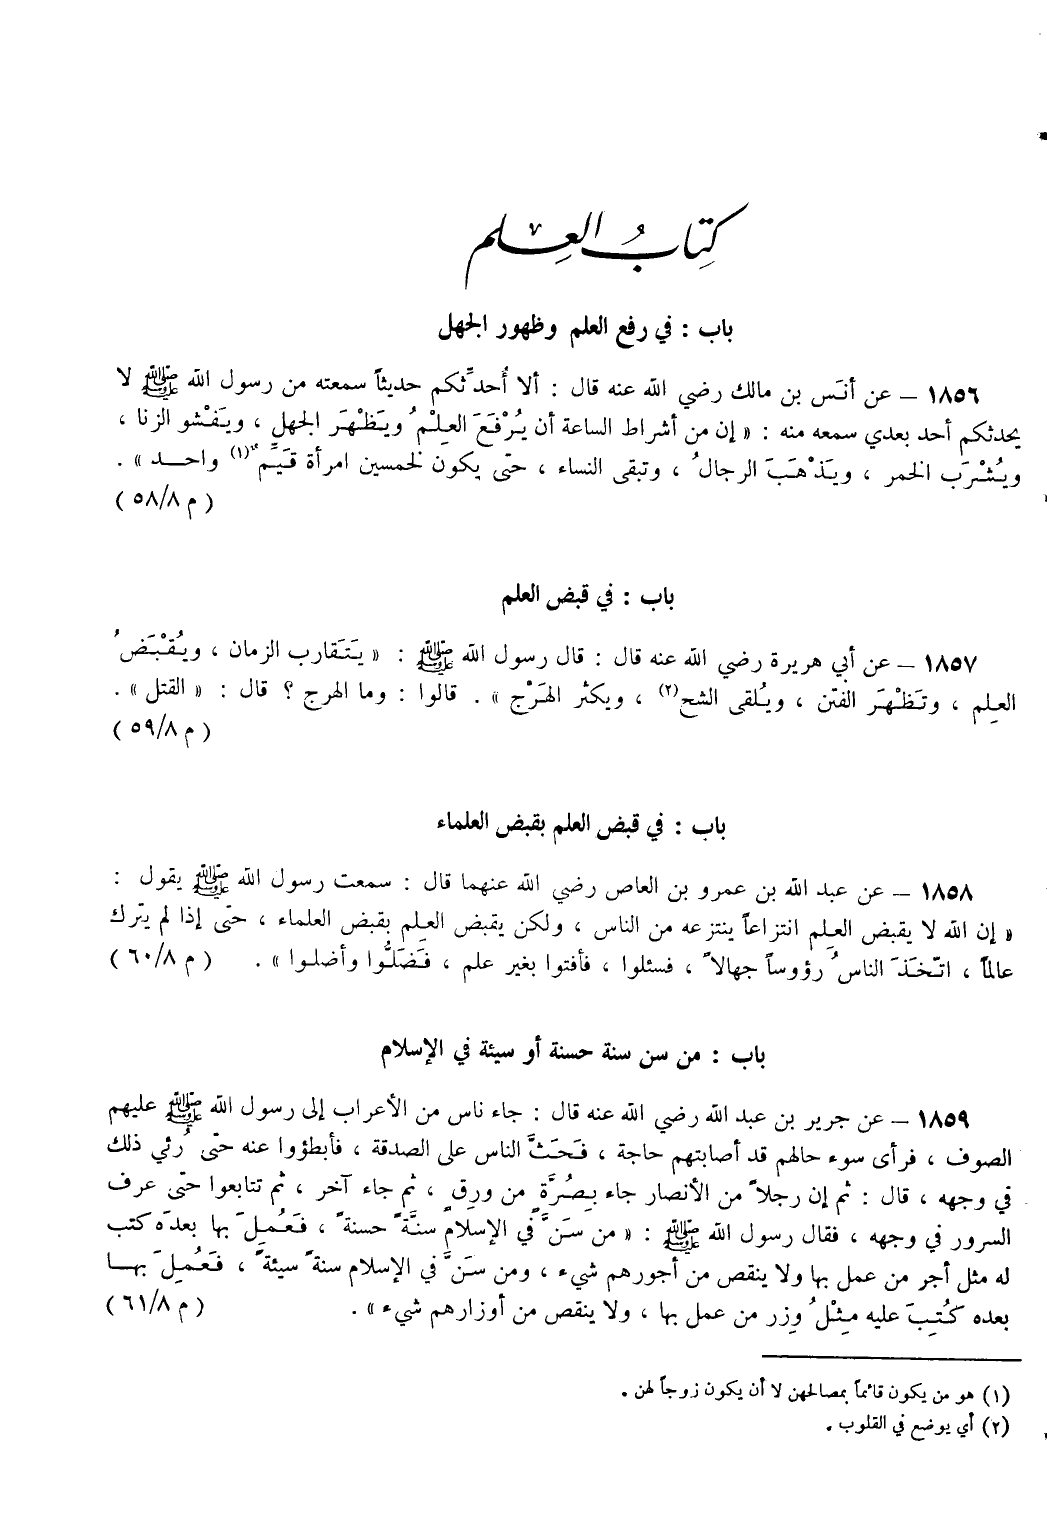 كِتَابُ العِلم
باب : في رفع العلم وظهور الجهل
١٨٥٦ – عن أنَس بن مالك رضي الله عنه قال : ألا أُحدِّثكم حديثاً سمعته من رسول الله ﷺ لا
يحدثكم أحد بعدي سمعه منه : « إن من أشراط الساعة أن يُرْفَعَ العِلْمُ ويَظْهَرَ الجهل ، ويَفْشو الزنا ،
ويُشْرَب الخمر ، ويَذْهَبَ الرجالُ ، وتبقى النساء ، حتّى يكون لخمسين امرأة قَيِّم(١) واحـــد » .
( م ٥٨/٨ )
باب : في قبض العلم
١٨٥٧ – عن أبي هريرة رضي الله عنه قال : قال رسول الله ﷺ : « يَتَقارب الزمان ، ويُقْبَضُ
العِلم ، وتَظْهَرَ الفتن ، ويُلقى الشح(٢) ، ويكثر الهَرْج » . قالوا : وما الهرج ؟ قال : « القتل » .
( م ٥٩/٨ )
باب : في قبض العلم بقبض العلماء
١٨٥٨ – عن عبد الله بن عمرو بن العاص رضي الله عنهما قال : سمعت رسول الله ﷺ يقول :
« إن الله لا يقبض العِلم انتزاعاً ينتزعه من الناس ، ولكن يقبض العِلم بقبض العلماء ، حتّى إذا لم يترك
عالماً ، اتّخَذَ الناسُ رؤوساً جهالاً ، فسئلوا ، فأفتوا بغير علم ، فَضَلُّوا وأضلوا » . ( م ٦٠/٨ )
باب : من سن سنة حسنة أو سيئة في الإسلام
١٨٥٩ – عن جرير بن عبد الله رضي الله عنه قال : جاء ناس من الأعراب إلى رسول الله ﷺ عليهم
الصوف ، فرأى سوء حالهم قد أصابتهم حاجة ، فَحَثَّ الناس على الصدقة ، فأبطؤوا عنه حتّى رُئي ذلك
في وجهه ، قال : ثم إن رجلاً من الأنصار جاء بِصُرَّةٍ من ورِقٍ ، ثم جاء آخر ، ثم تتابعوا حتّى عرف
السرور في وجهه ، فقال رسول الله ﷺ : « من سَنَّ في الإسلام سنَّةً حسنةً ، فَعُمِلَ بها بعدَه كتب
له مثل أجر من عمل بها ولا ينقص من أجورهم شيء ، ومن سَنَّ في الإسلام سنةً سيئةً ، فَعُمِلَ بهــا
بعده كُتِبَ عليه مِثْلُ وِزر من عمل بها ، ولا ينقص من أوزارهم شيء » . ( م ٦١/٨ )
(١) هو من يكون قائماً بمصالحهن لا أن يكون زوجاً لهن .
(٢) أي يوضع في القلوب .